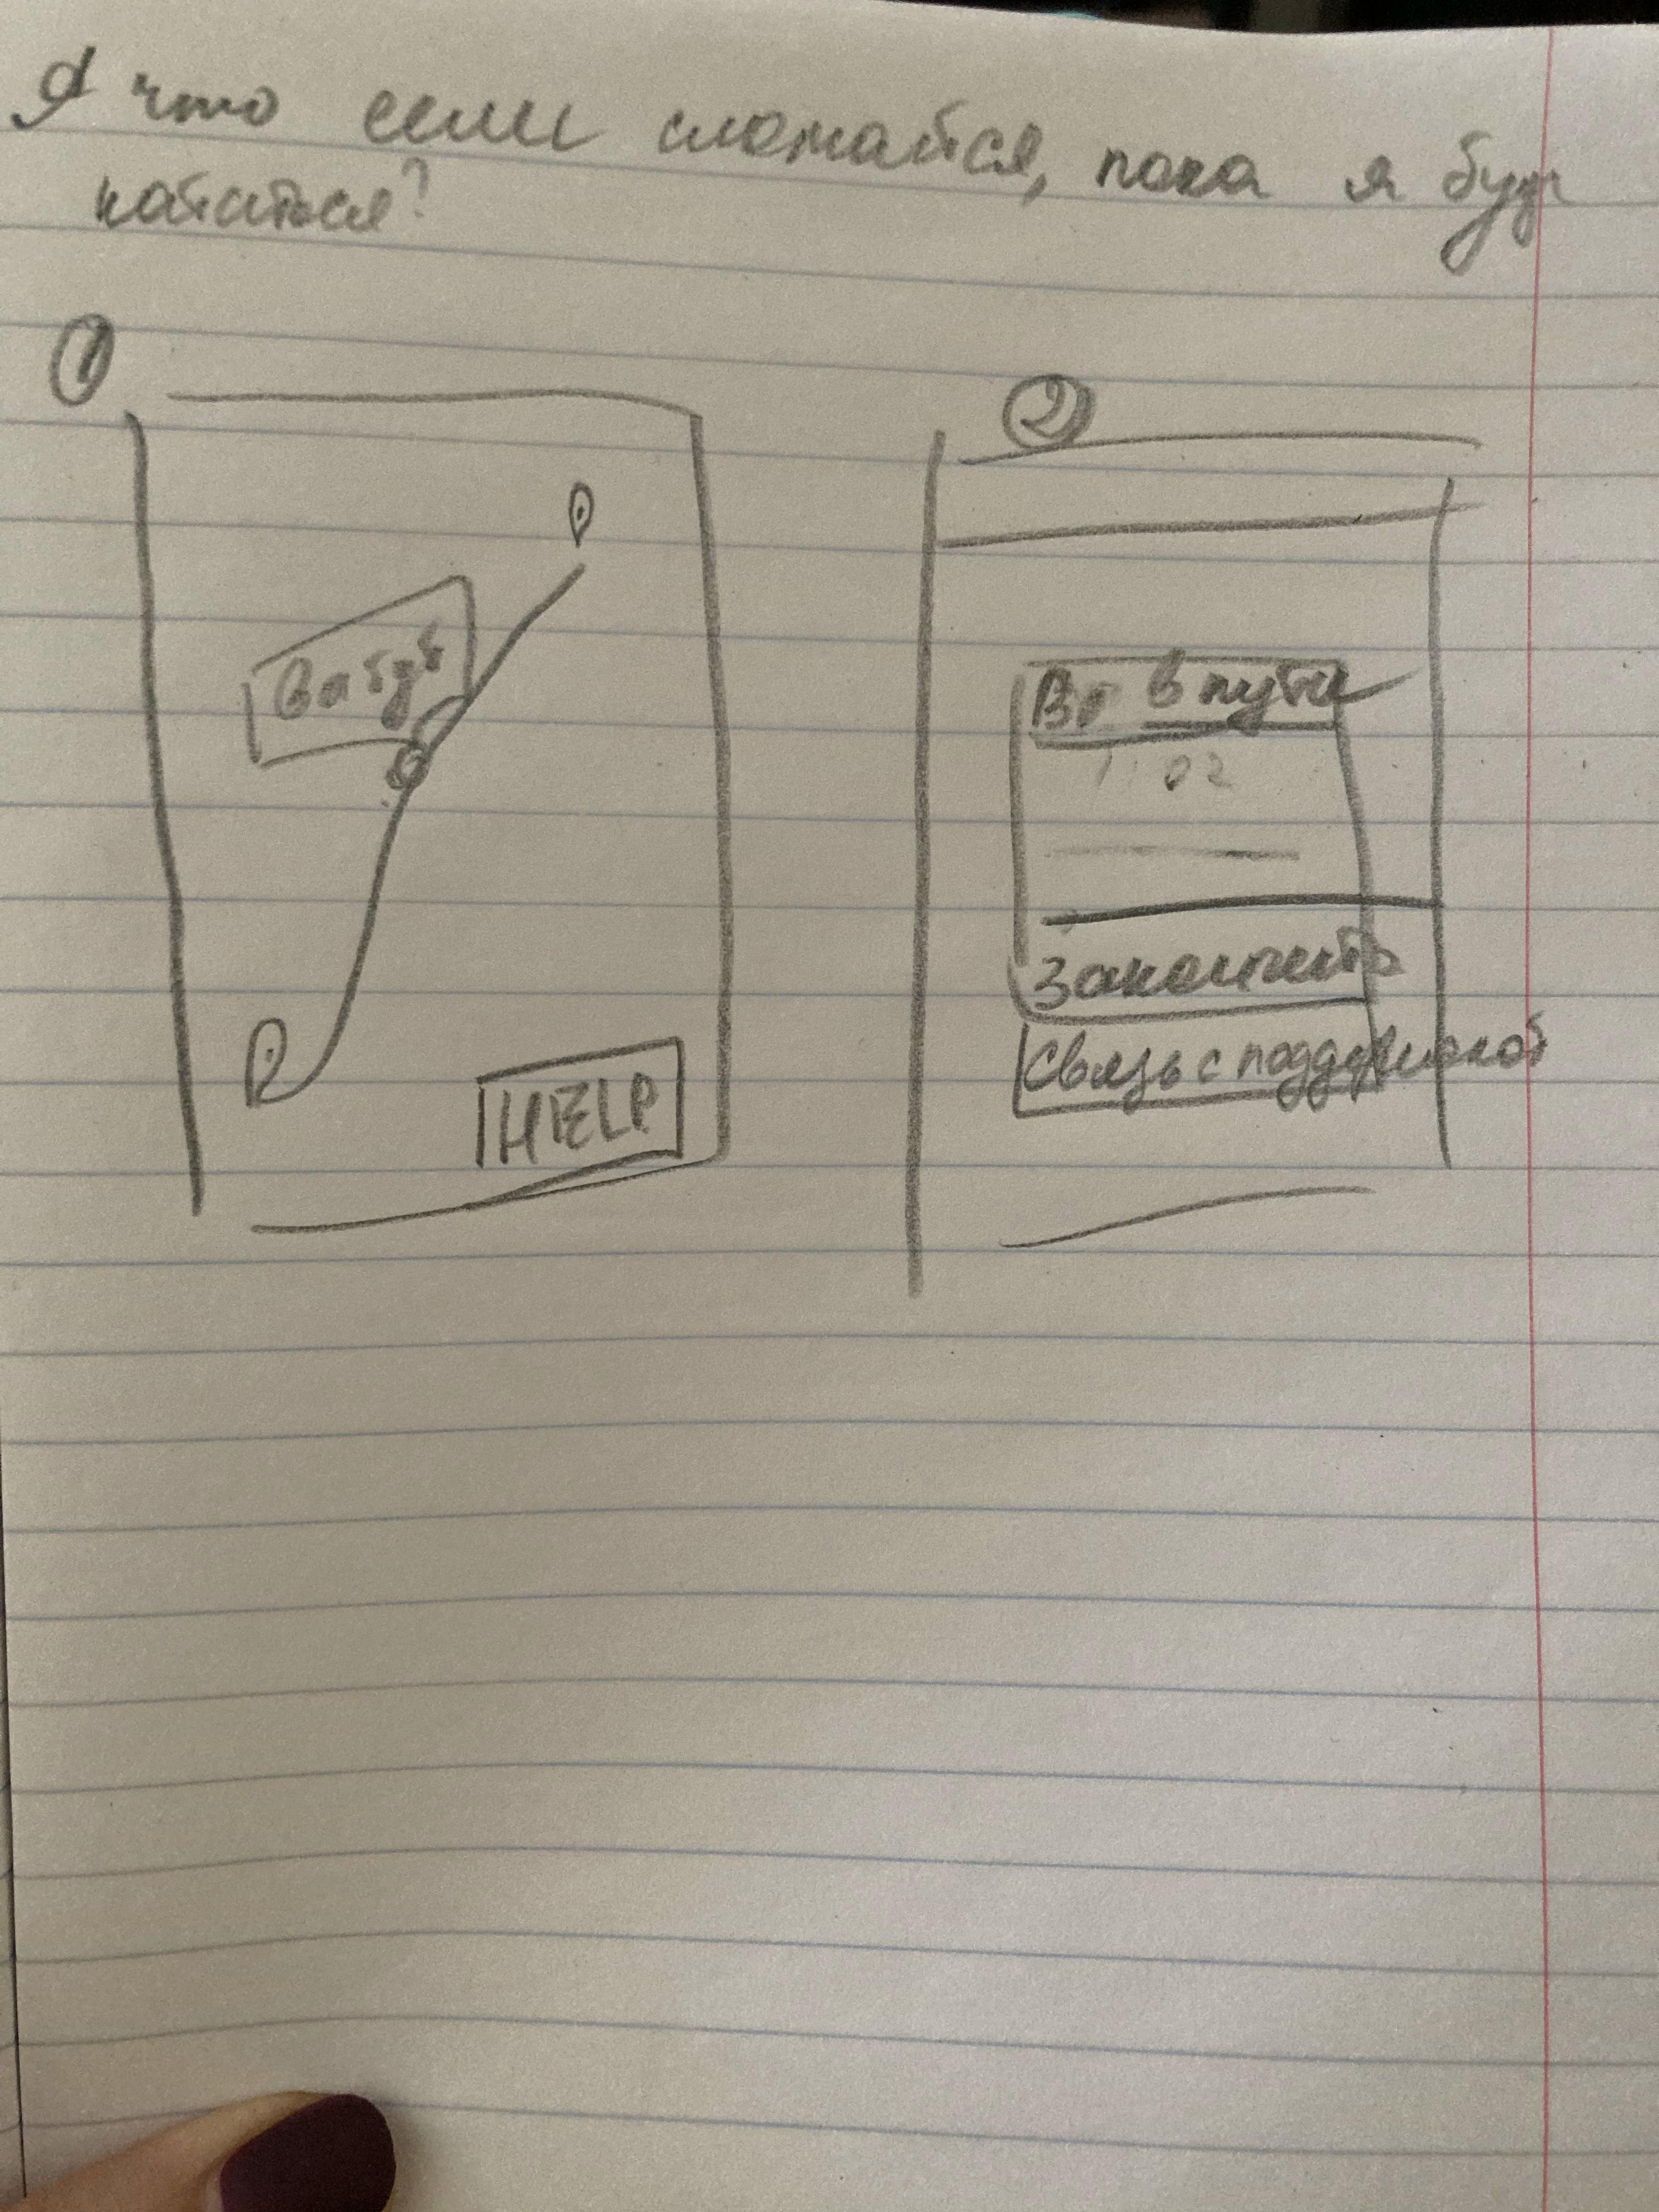 А что если сломайся, пока я буду
кататься?
1
2
Вы тут
HELP
Вы в пути
1:02
Закончить
Связь с поддержкой